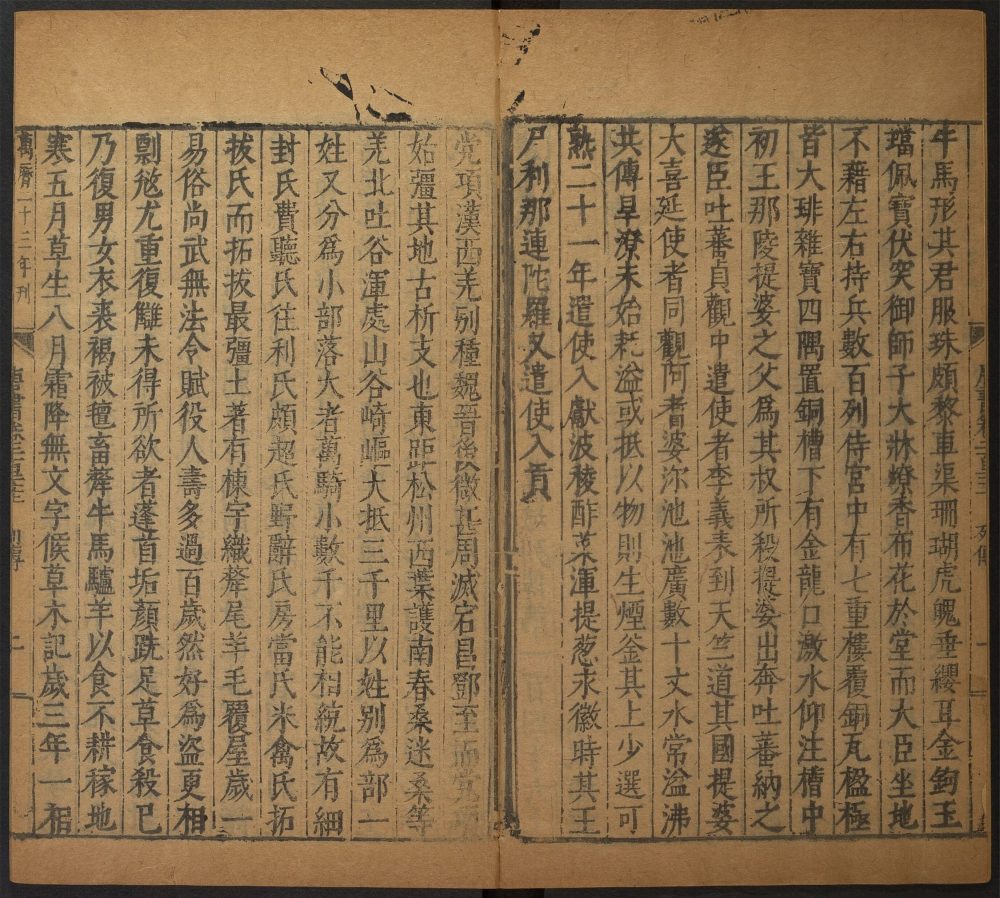 牛馬形其君服珠頗黎車渠珊瑚虎魄垂纓耳金鉤玉
璫佩寶伏突御師子大牀燎香布花於堂而大臣坐地
不藉左右持兵數百列侍宮中有七重樓覆銅瓦楹極
皆大琲雜寶四隅置銅槽下有金龍口激水仰注槽中
初王那陵提婆之父爲其叔所殺提婆出奔吐蕃納之
遂臣吐蕃貞觀中遣使者李義表到天竺道其國提婆
大喜延使者同觀阿耆婆沵池池廣數十丈水常溢沸
共傳旱潦未始耗溢或抵以物則生煙釜其上少選可
熟二十一年遣使入獻波稜酢菜渾提葱末徽時其王
尸利那連陀羅又遣使入貢
党項漢西羌別種魏晉後微甚周滅宕昌鄧至而党項
始彊其地古析支也東距松州西葉護南春桑迷桑等
羌北吐谷渾處山谷崎嶇大抵三千里以姓別爲部一
姓又分爲小部落大者萬騎小數千不能相統故有細
封氏費聽氏往利氏頗超氏野辭氏房當氏米禽氏拓
拔氏而拓拔最彊土著有棟宇織犛尾羊毛覆屋歲一
易俗尚武無法令賦役人壽多過百歲然好爲盜更相
剽尨尤重復讎未得所欲者蓬首垢顏跣足草食殺已
乃復男女衣裘褐被氊畜犛牛馬驢羊以食不耕稼地
寒五月草生八月霜降無文字候草木記歲三年一相
萬曆二十三年刊
列傳
二